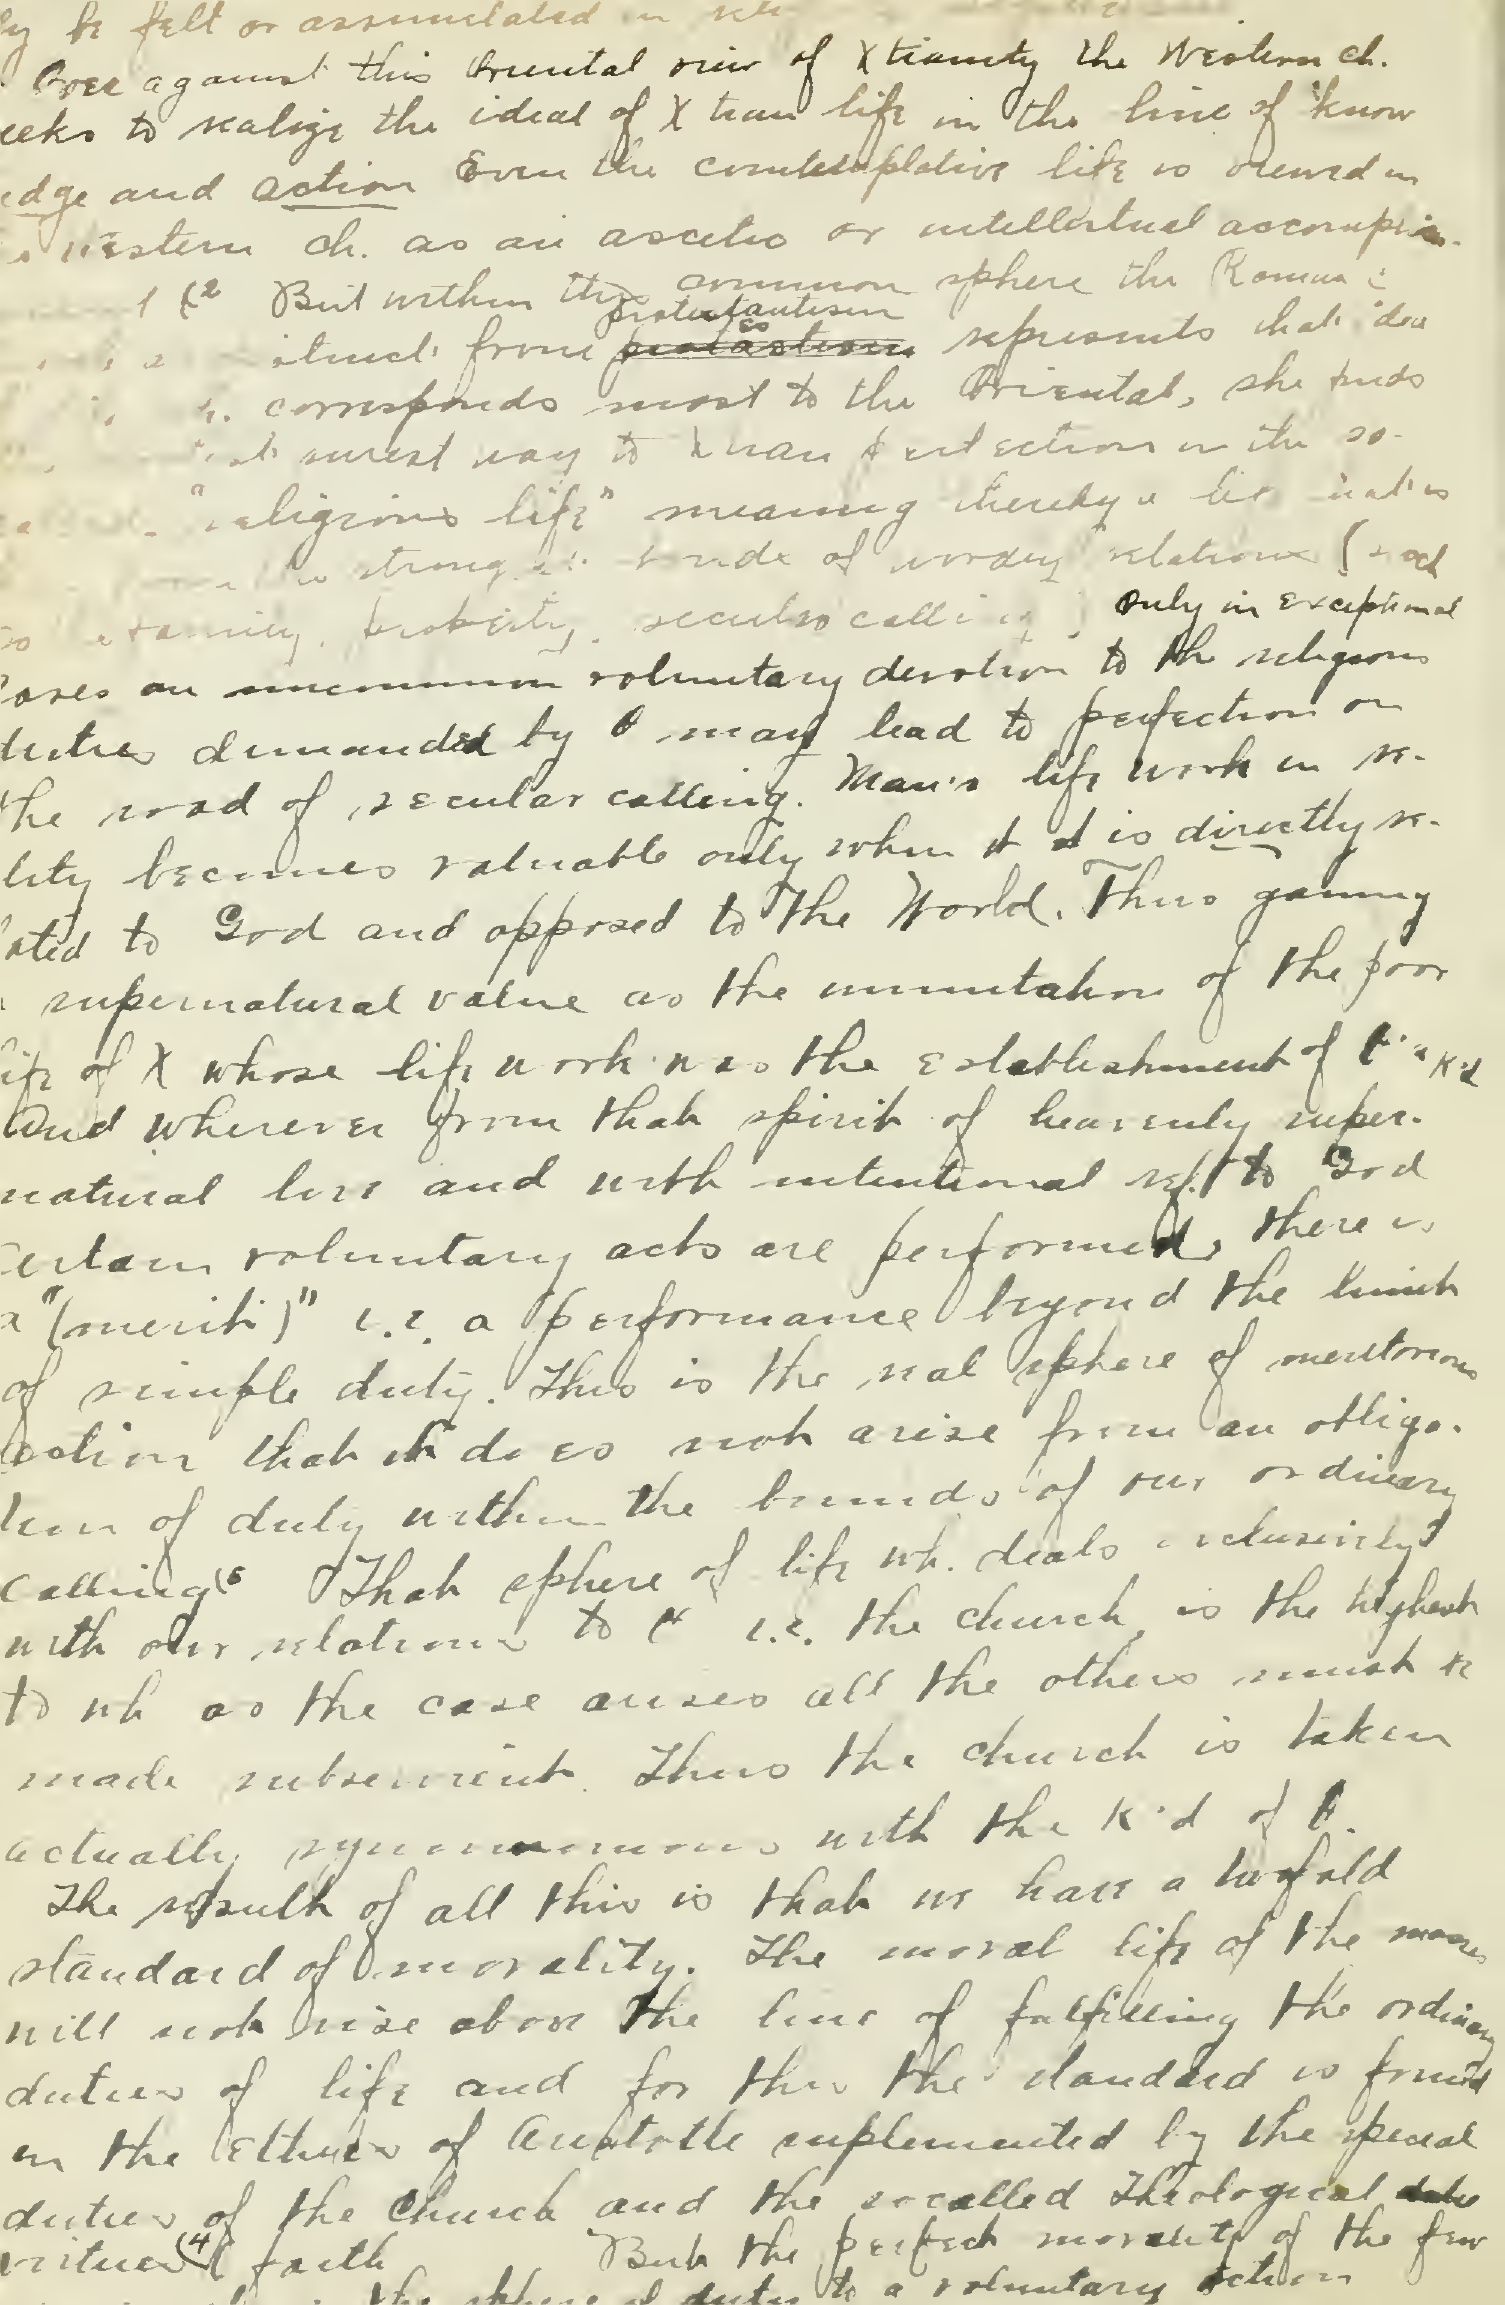 ly be felt or assimilated in
Over against this Oriental view of Xtianity the Western ch.
eeks to realize the ideal of Xtian life in the line of know
edge and action Even the contemplative life is viewed in
Western ch. as an ascetic or intellectual accomplish.
(2 But within this common sphere the Roman
protestantism
distinct from represents that idea
corresponds most to the Oriental, she finds
surest way to Xtian perfection in the so-
"religious life" meaning thereby a life
of relations (such
family, property, secular calling) only in exceptional
cases an uncommon voluntary devotion to the religious
duties demanded by θ may lead to perfection on
the road of secular calling. Man's life work in re-
lity becomes valuable only when it is directly re-
lated to God and opposed to the World. Thus gaining
supernatural value as the immitation of the poor
life of X whose life work was the establishment of θ's K'd
And wherever from that spirit of heavenly super-
natural love and with intentional ref. to God
certain voluntary acts are performed, there is
a "(merit)" i.e. a performance beyond the limit
of simple duty. This is the real sphere of meritorious
action that it does not arise from an obliga-
tion of duty within the bounds of our ordinary
calling That sphere of life wh. deals exclusively
with our relations to θ i.e. the church, is the highest
to wh as the case arises all the others must be
made subservient. Thus the church is taken
actually synonomous with the K'd of θ.
The result of all this is that we have a twofold
standard of morality. The moral life of the masses
will not rise above the line of fulfilling the ordinary
duties of life and for this the standard is found
in the Ethics of Aristotle suplemented by the special
duties of the Church and the socalled Theological
virtues (4 faith But the perfect morality of the few
the sphere of duty to a voluntary action